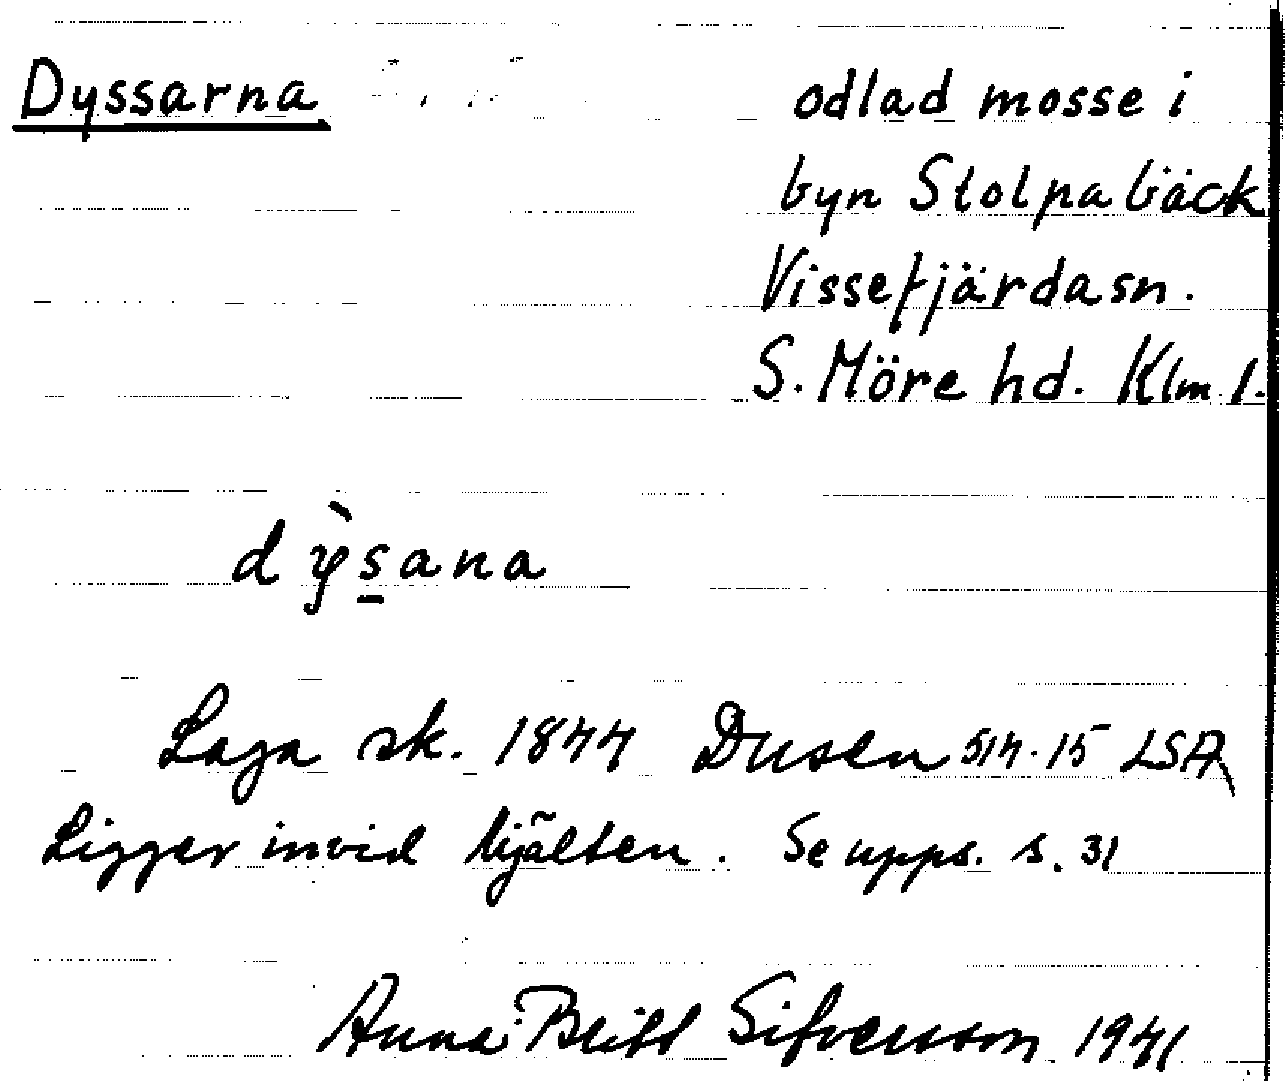 Dyssarna odlad mosse i
byn Stolpabäck
Vissefjärda sn.
S. Möre hd. Klm l.
dỳs̲ana
Laga sk. 1844 Dusen 514-15 LSA
Ligger invid hjälten. Se upps. s. 31
Anna-Britt Sifvensson 1941